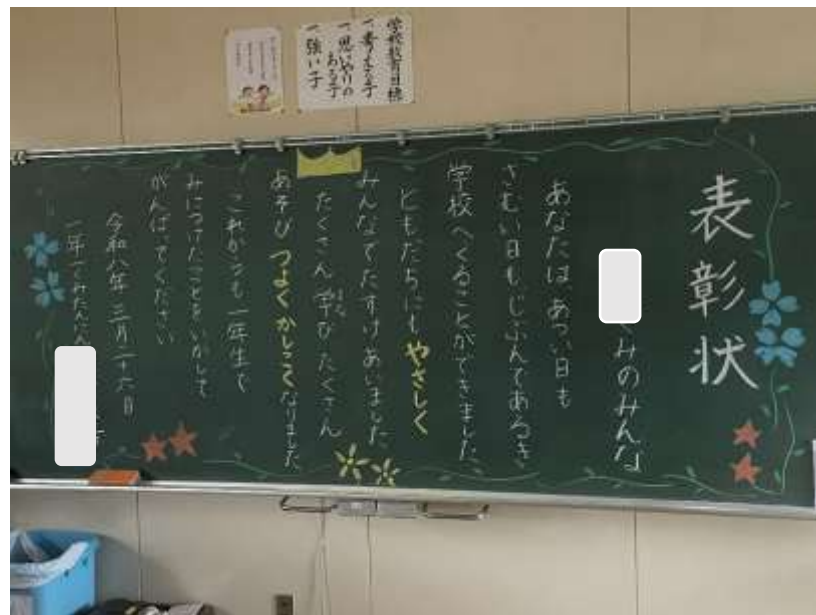 学校教育目標
一 考える子
一 思いやりのある子
一 強い子
表彰状
くみのみんな
あなたは あつい日も
さむい日も、じぶんであるき、
学校へくることができました。
ともだちにも やさしく
みんなでたすけあいました
たくさん学び たくさん
まな
あそび つよくかしこくなりました
これからも 一年生で
みにつけたことをいかして
がんばってください
令和八年 三月二十六日